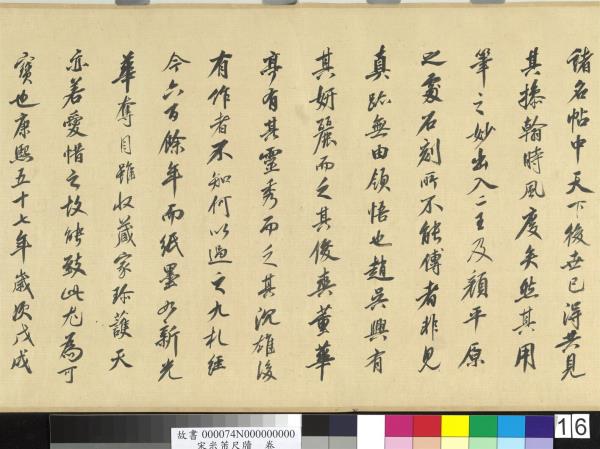 諸名帖中天下後世已得共見
其揉翰時風度矣然其用
筆之妙出入二王及顏平原
之處石刻所不能傳者非見
真跡無由領悟也趙吳興有
其妍麗而乏其俊爽董華
亭有其靈秀而乏其沉雄後
有作者不知何以過之九札經
今六百餘年而紙墨如新光
華奪目雖收藏家珍護天
亦若愛惜之故能致此尤為可
寶也康熙五十七年歲次戊戌
故書 000074N000000000
宋米芾尺牘 卷
16